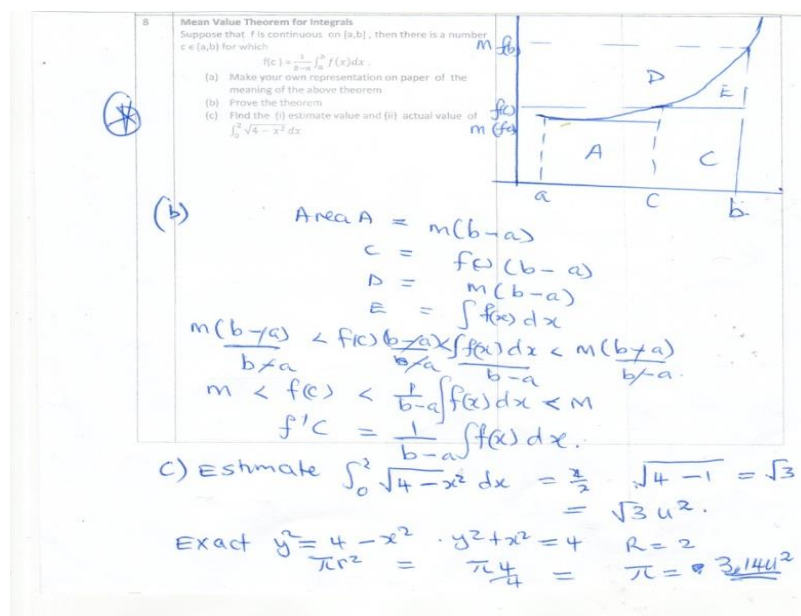 8 Mean Value Theorem for Integrals
Suppose that f is continuous on [a,b], then there is a number
c ϵ (a,b) for which
f(c) = 1/(b−a) ∫ₐᵇ f(x)dx .
(a) Make your own representation on paper of the
meaning of the above theorem
(b) Prove the theorem
(c) Find the (i) estimate value and (ii) actual value of
∫₀² √(4 − x²) dx
m f(b)
f(c)
m f(a)
D
E
A
C
a
C
b
(b) Area A = m(b-a)
C = f(c) (b-a)
D = m(b-a)
E = ∫ f(x) dx
m(b-a)/(b-a) < f(c)(b-a)/(b-a) < ∫f(x)dx/(b-a) < M(b-a)/(b-a)
m < f(c) < 1/(b-a) ∫f(x)dx < M
f'C = 1/(b-a) ∫f(x) dx.
C) Estimate ∫₀² √(4-x²) dx = 2/2 √(4-1) = √3
= √3 u².
Exact y² = 4 - x² . y²+x² = 4 R = 2
πr² = π4/4 = π = 3.14u²